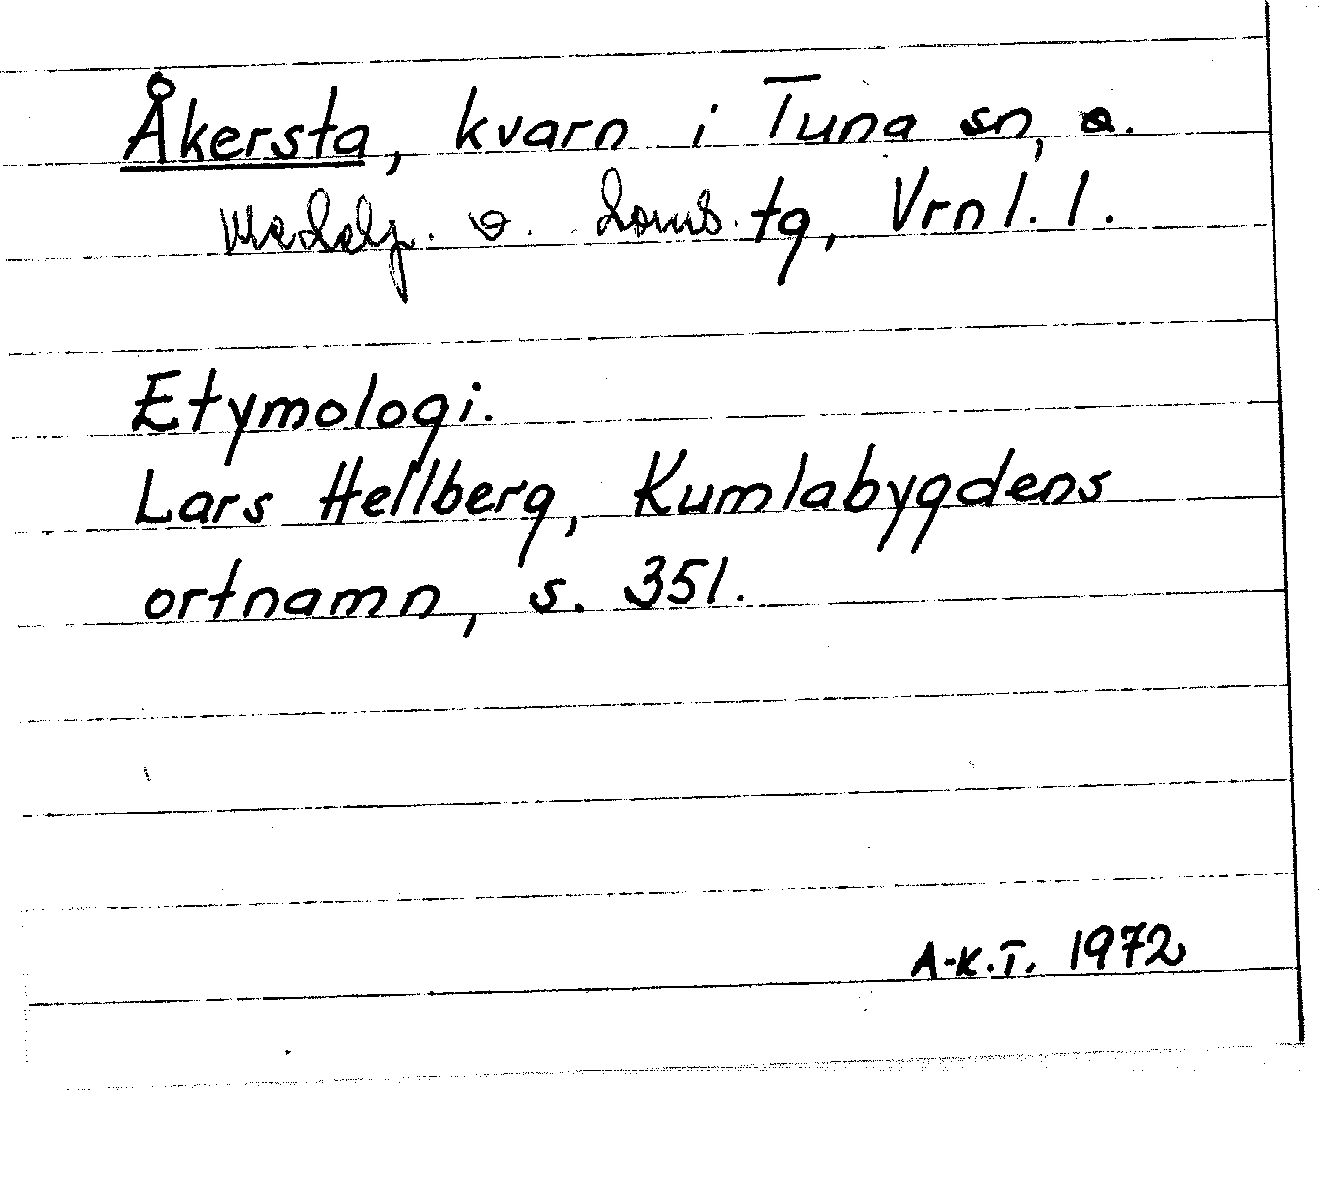 Åkersta, kvarn i Tuna sn,
Medelp. v. doms. tg, Vrnl. l.
Etymologi.
Lars Hellberg, Kumlabygdens
ortnamn, s. 351.
A-K.T. 1972